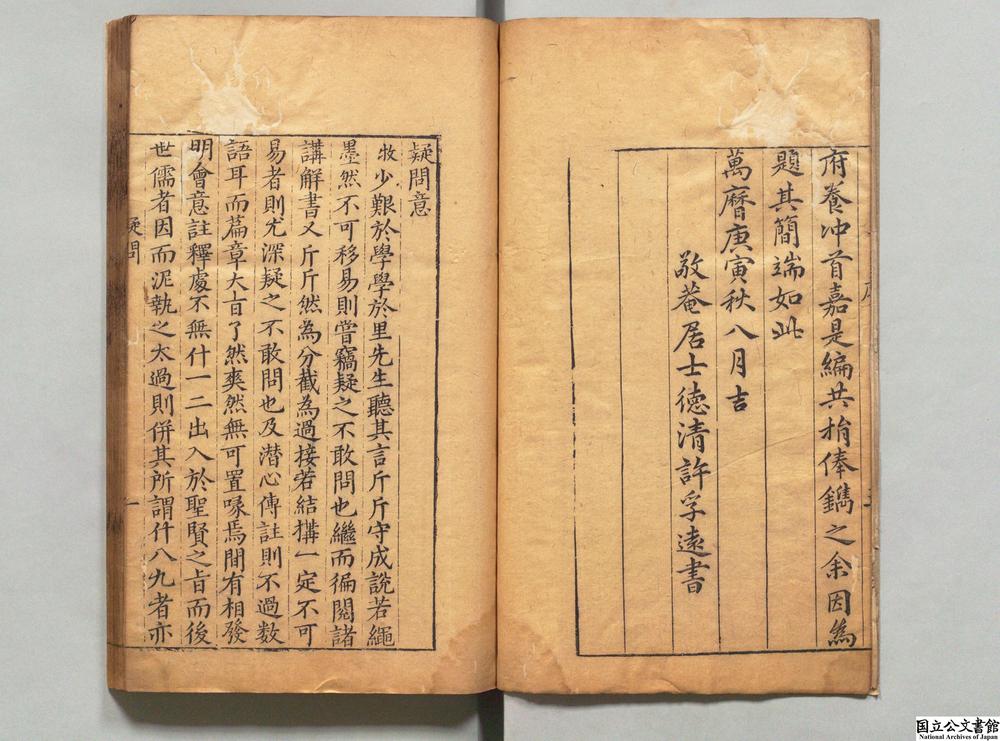 府養冲首嘉是編共捐俸鐫之余因為
題其簡端如此
萬曆庚寅秋八月吉
敬菴居士德清許孚遠書
疑問意
牧少艱於學學於里先生聽其言斤斤守成說若繩
墨然不可移易則嘗竊疑之不敢問也繼而徧閱諸
講解書又斤斤然為分截為過接若結搆一定不可
易者則尤深疑之不敢問也及潜心傳註則不過數
語耳而篇章大㫖了然爽然無可置喙焉間有相發
明會意註釋處不無什一二出入於聖賢之㫖而後
世儒者因而泥執之太過則併其所謂什八九者亦
疑問
一
国立公文書館
National Archives of Japan